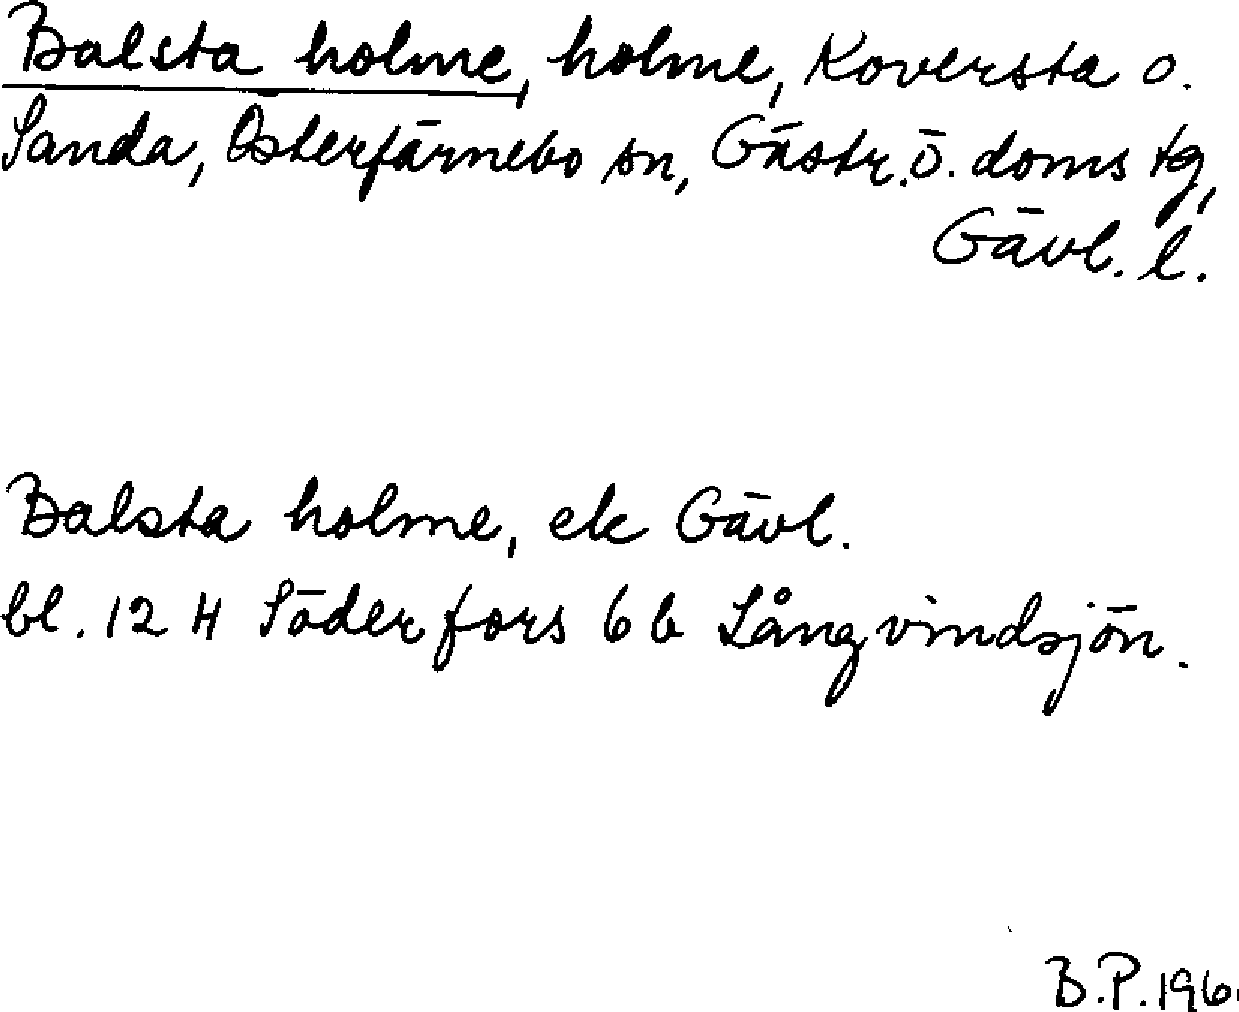 Balsta holme, holme, Koversta o.
Sanda, Österfärnebo sn, Gästr. ö. doms tg,
Gävl. l.
Balsta holme, ek Gävl.
bl. 12 H Söderfors 6 b Långvindsjön.
B.P. 196